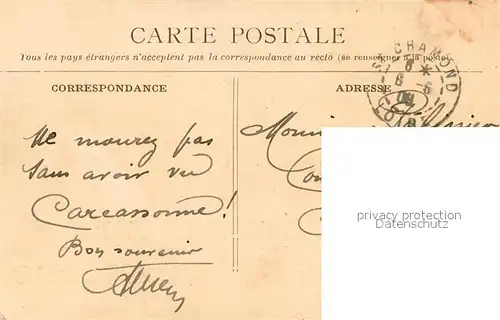 CARTE POSTALE
Tous les pays étrangers n'acceptent pas la correspondance au recto (se renseigner à la poste)
ST CHAMOND
6 *
6 - 6
09
LOIRE
CORRESPONDANCE
ADRESSE
Ne mourez pas
sans avoir vu
Carcassonne!
Bon souvenir
privacy protection
www.oldthing.com